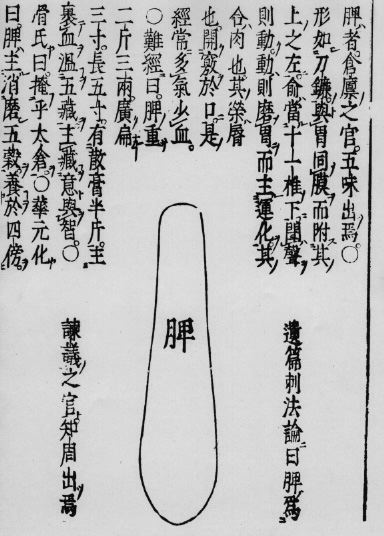 脾者倉廩之官五味出焉○
形如刀鐮與胃同膜而附其
上之左俞當十一椎下聞聲
則動動則磨胃而主運化其
合肉也其榮唇
也開竅於口是
經常多氣少血
○難經曰脾重
二斤三兩廣扁
三寸長五寸有散膏半斤主
裹血溫五臟主藏意與智○
滑氏曰掩乎太倉○華元化
曰脾主消磨五穀養於四傍
遺篇刺法論曰脾爲
脾
諫議之官知周出焉